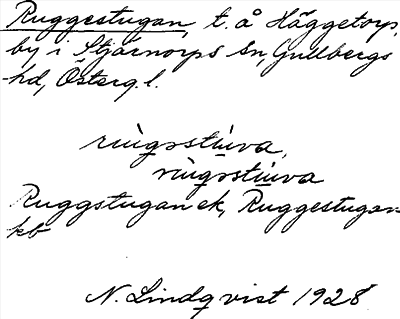 Ruggestugan, t. å Häggetorp,
by i Stjärnorps sn, Gullbergs
hd, Östergl.
rùgostúva,
rùgostúva
Ruggstugan ek, Ruggestugan
kb
N. Lindqvist 1928